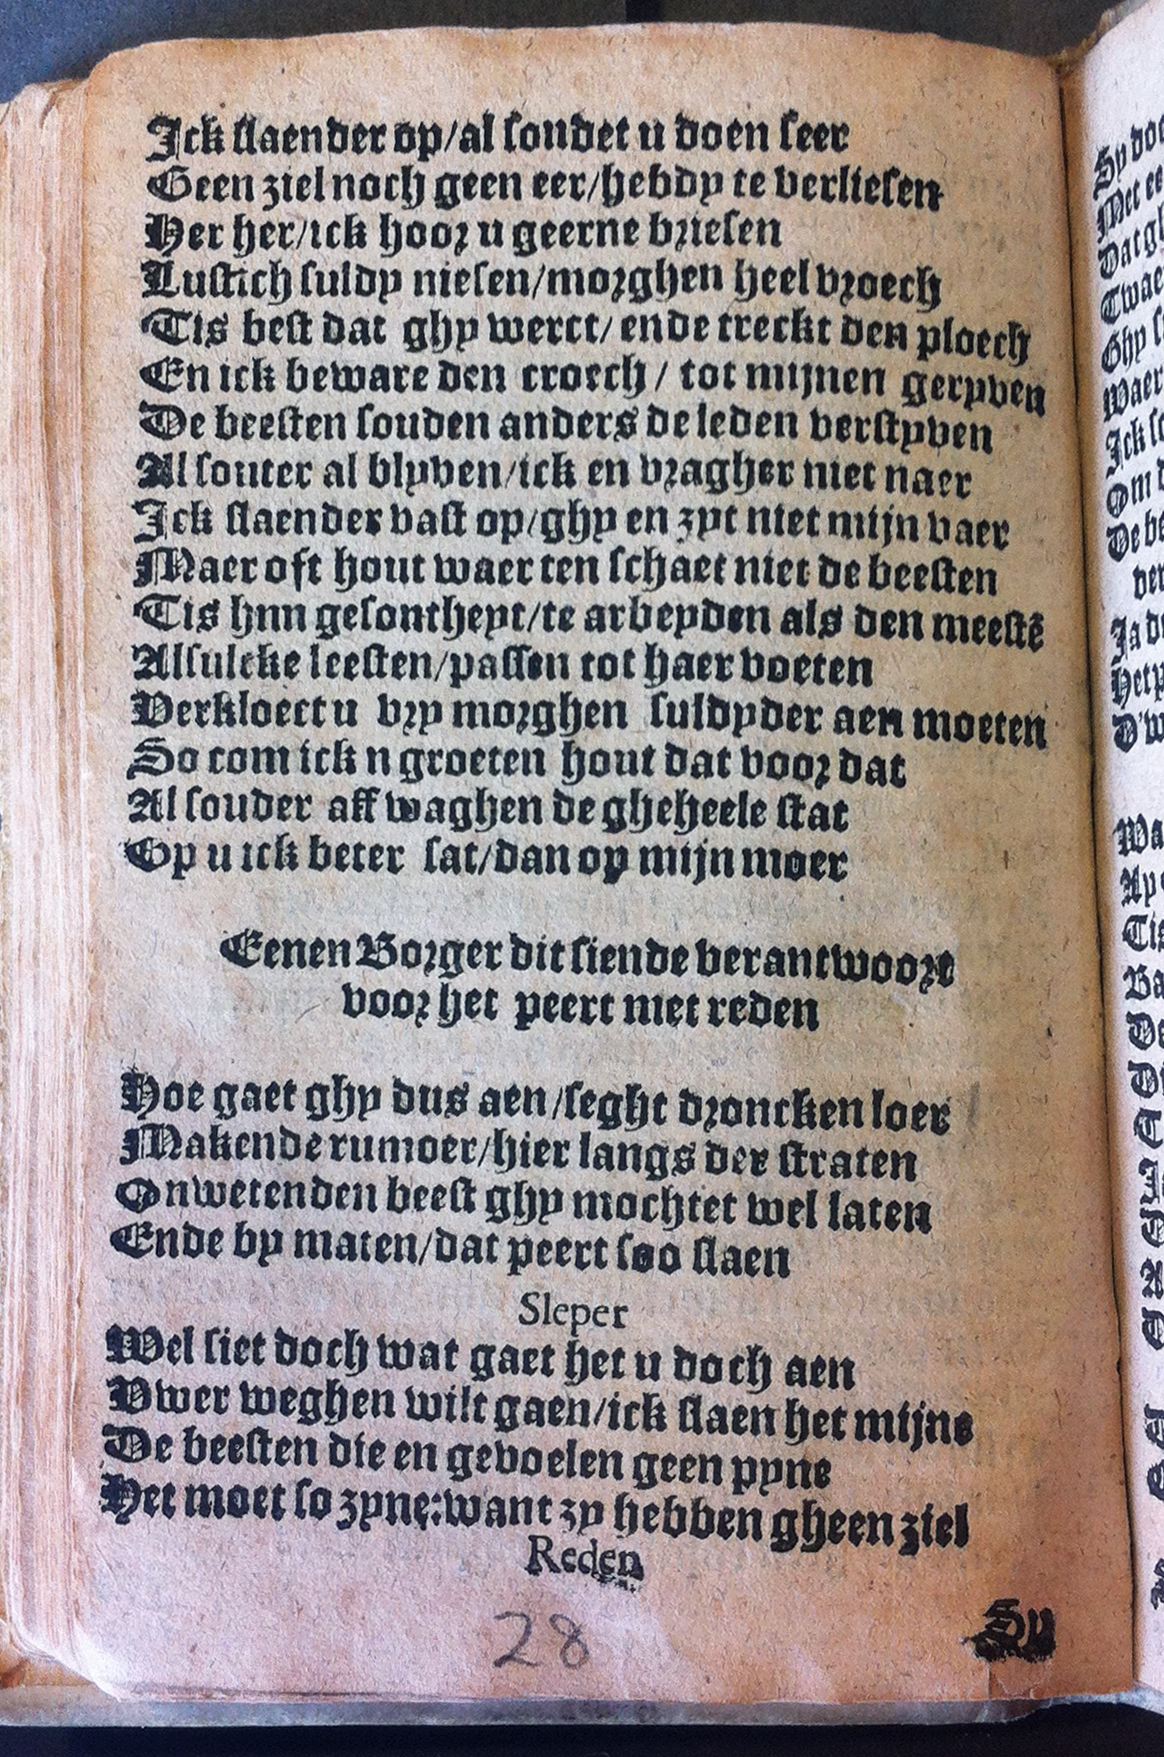 Ick slaender op/al soudet u doen seer
Geen ziel noch geen eer/hebdy te verliesen
Her her/ick hoor u geerne briesen
Lustich suldy niesen/morghen heel vroech
Tis best dat ghy werct/ ende treckt den ploech
En ick beware den croech / tot mijnen geryven
De beesten souden anders de leden verstyven
Al souter al blyven/ick en vragher niet naer
Ick slaender vast op/ghy en zyt niet mijn vaer
Maer oft hout waer ten schaet niet de beesten
Tis hnn gesontheyt/te arbeyden als den meestē
Alsulcke leesten/passen tot haer voeten
Verkloect u vry morghen suldyder aen moeten
So com ick n groeten hout dat voor dat
Al souder aff waghen de gheheele stat
Op u ick beter sat/dan op mijn moer
Eenen Borger dit siende verantwoort
voor het peert met reden
Hoe gaet ghy dus aen/seght droncken loer
Makende rumoer/hier langs der straten
Onwetenden beest ghy mochtet wel laten
Ende by maten/dat peert soo slaen
Sleper
Wel siet doch wat gaet het u doch aen
Vwer weghen wilt gaen/ick slaen het mijne
De beesten die en gevoelen geen pyne
Het moet so zyne:want zy hebben gheen ziel
Reden
28
Sy
Sy
Met
Dat
Ghy
Waer
Ick
Om
De
Ja
D'w
Wa
Tis
Ba